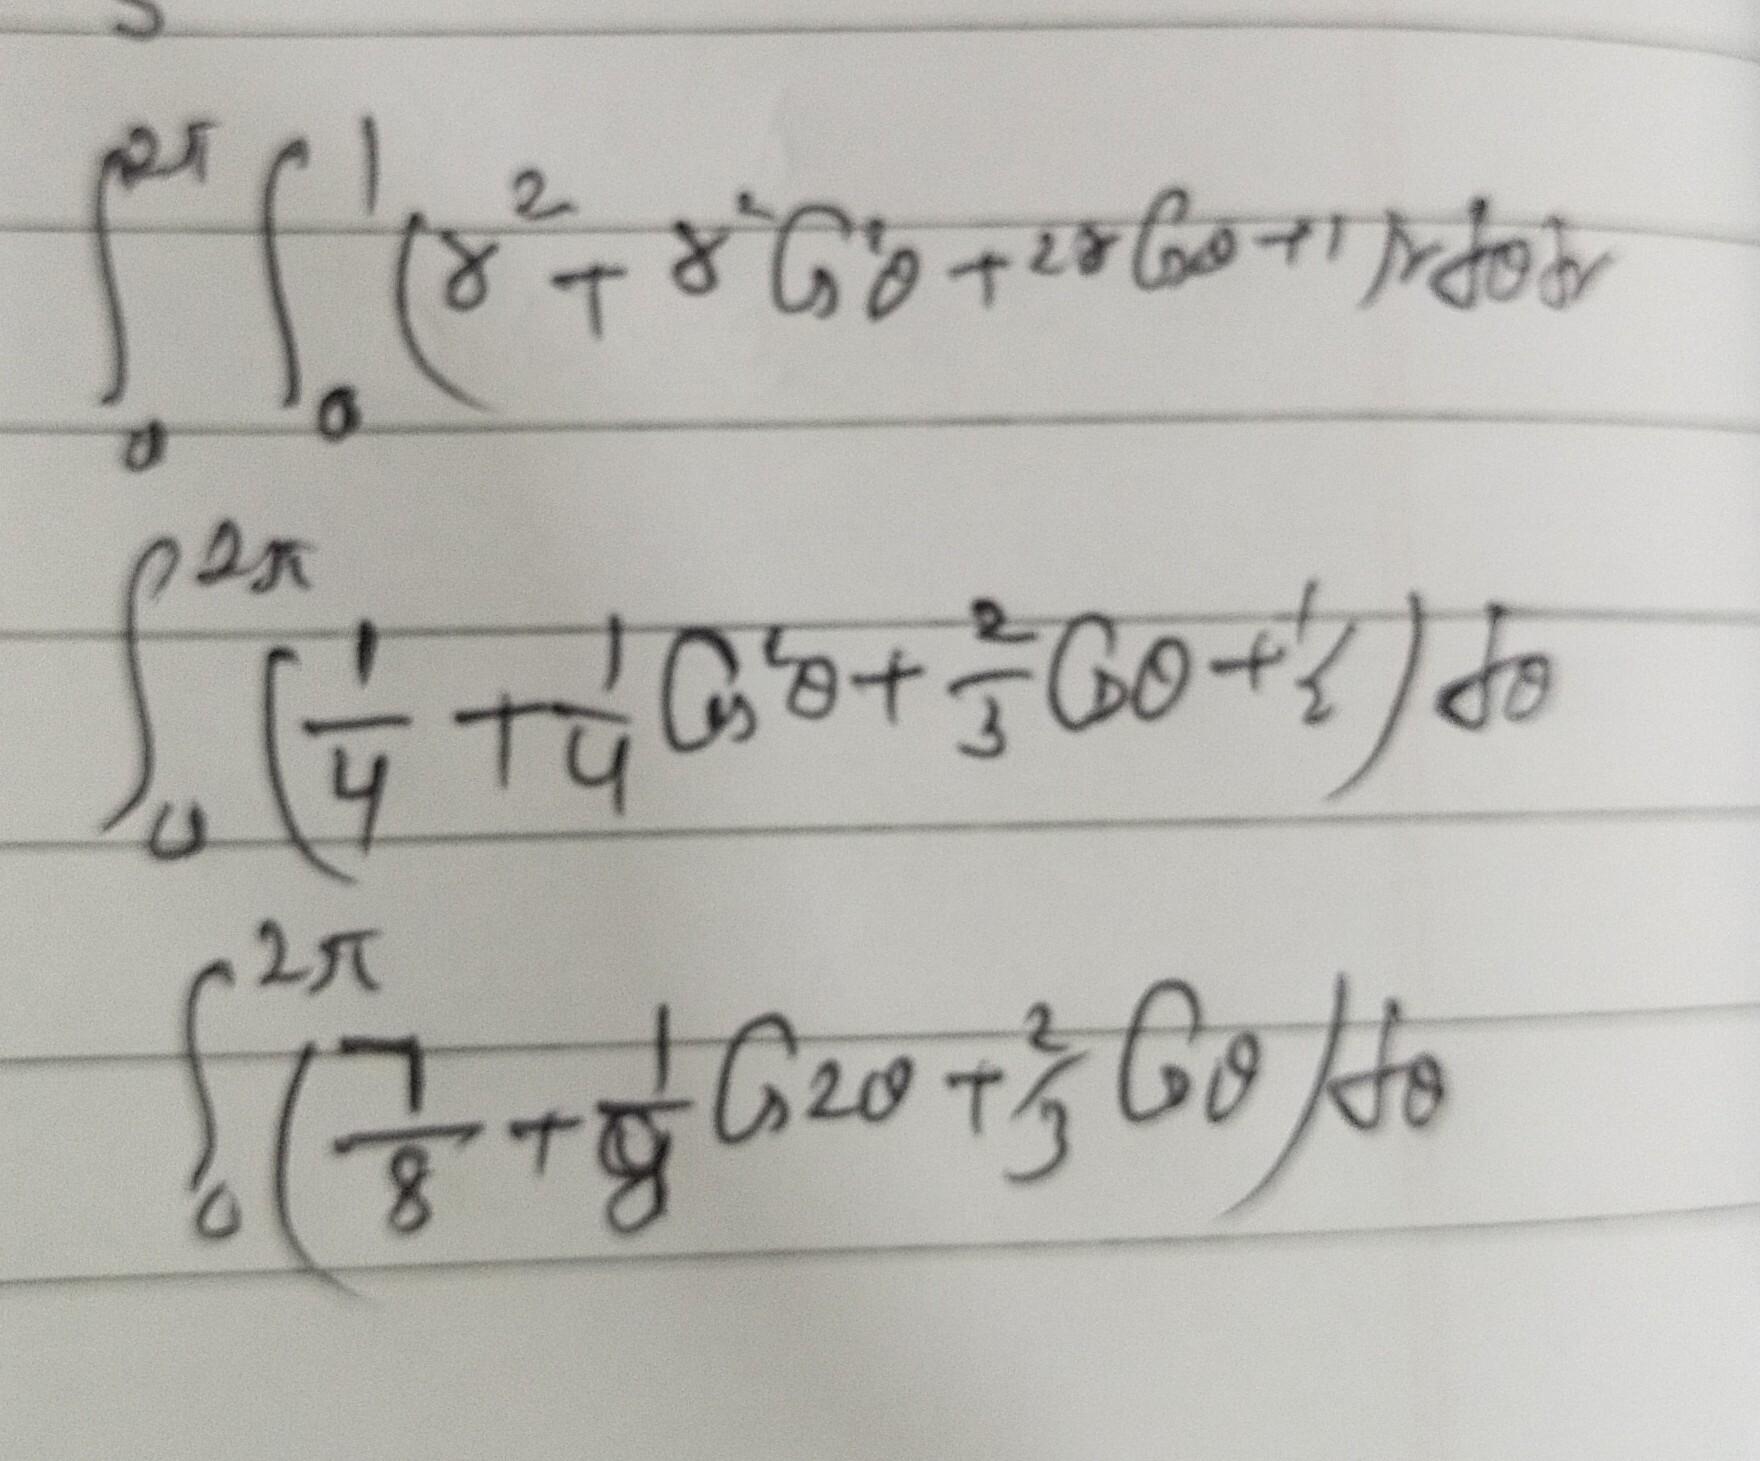 ∫₀^{2π} ∫₀^{1} (r² + r² Cos²θ + 2r Cosθ + 1) r dθ dr
∫₀^{2π} (1/4 + 1/4 Cos²θ + 2/3 Cosθ + 1/2) dθ
∫₀^{2π} (7/8 + 1/8 Cos2θ + 2/3 Cosθ) dθ